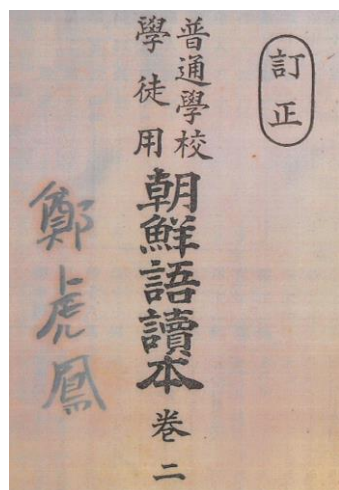 訂正
普通學校
學徒用
朝鮮語讀本 卷二
鄭虎鳳